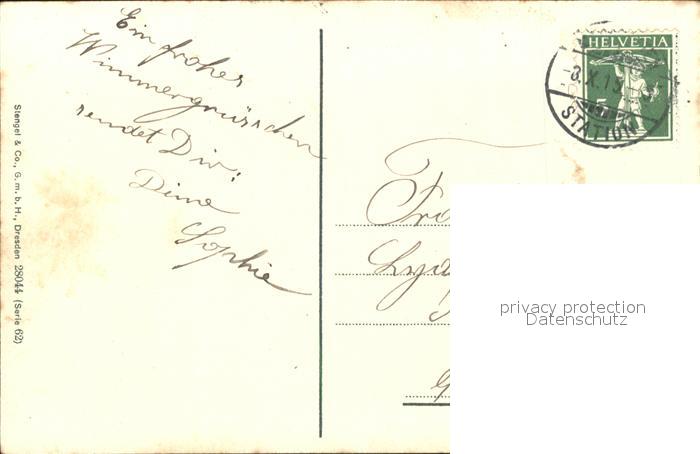 Ein froher
Wimmergrüsschen
sendet Dir:
Deine
Sophie
Stengel & Co., G. m. b. H., Dresden 28044 (Serie 62)
HELVETIA
-8.X.15
STATION
privacy protection
Datenschutz